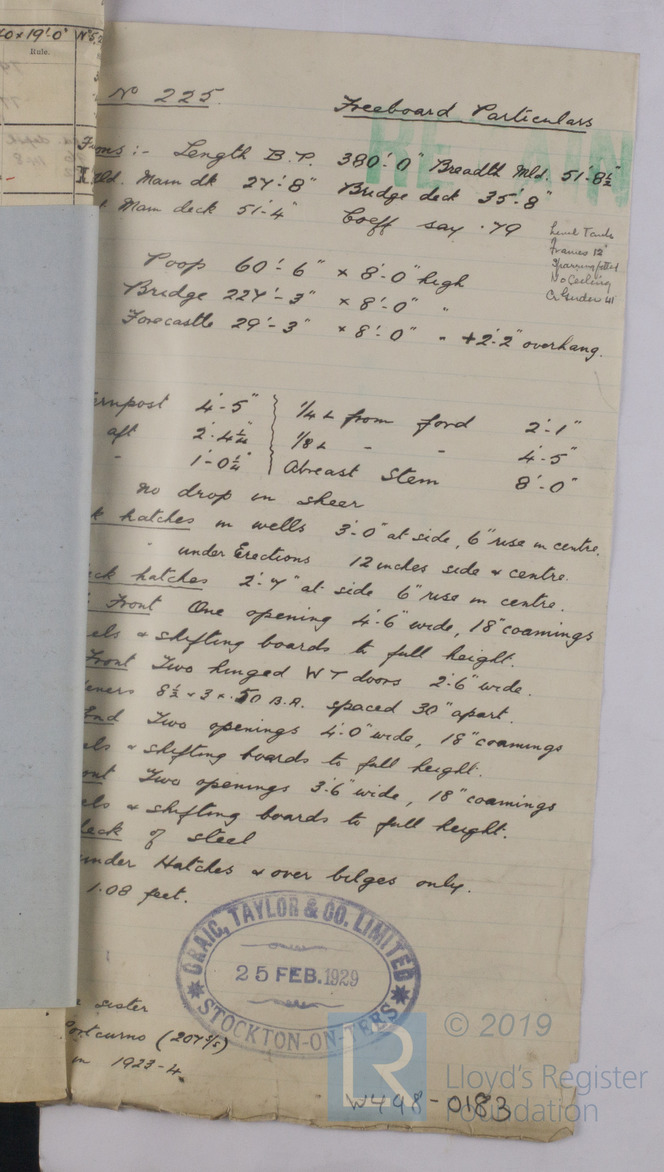 0 x 19'.0" No 5,
Rule.
No 225. Freeboard Particulars
RETAIN
:- Length B.P. 380'.0" Breadth Mld. 51'-8½"
Mld. Main dk 27'-8" Bridge deck 35'-8"
Main deck 51'-4" Coeff say .79
Level Tanks
Frames 12"
Sparring fitted
No Ceiling
Cr Girders 41
Poop 60'-6" x 8'-0" high
Bridge 227'-3" x 8'-0" "
Forecastle 29'-3" x 8'-0" " + 2'-2" overhang.
ernpost 4'-5" } ¼ L from ford 2'-1"
aft 2'.4¼" ⅛ L - - 4'-5"
- 1'-0¼" Abreast Stem 8'-0"
no drop in sheer
k hatches in wells 3'-0" at side, 6" rise in centre.
" under Erections 12 inches side & centre.
ck hatches 2'-7" at side 6" rise in centre.
Front One opening 4'-6" wide, 18" coamings
els & shifting boards to full height.
Front Two hinged W T doors 2'-6" wide.
eners 8½ x 3 x .50 B.A. spaced 30" apart.
End Two openings 4'-0" wide, 18" coamings
els & shifting boards to full height.
ont Two openings 3'-6" wide, 18" coamings
els & shifting boards to full height.
deck of steel
under Hatches & over bilges only.
1.08 feet.
CRAIG, TAYLOR & CO. LIMITED
25 FEB. 1929
STOCKTON-ON-TEES
sister
Portcurno (207 S/S)
in 1923-4
LR
© 2019
Lloyd's Register
Foundation
W498-0183